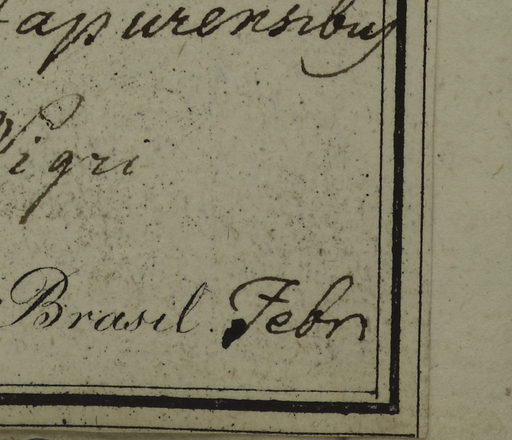 Japurensibus
Nigri
Brasil. Febr